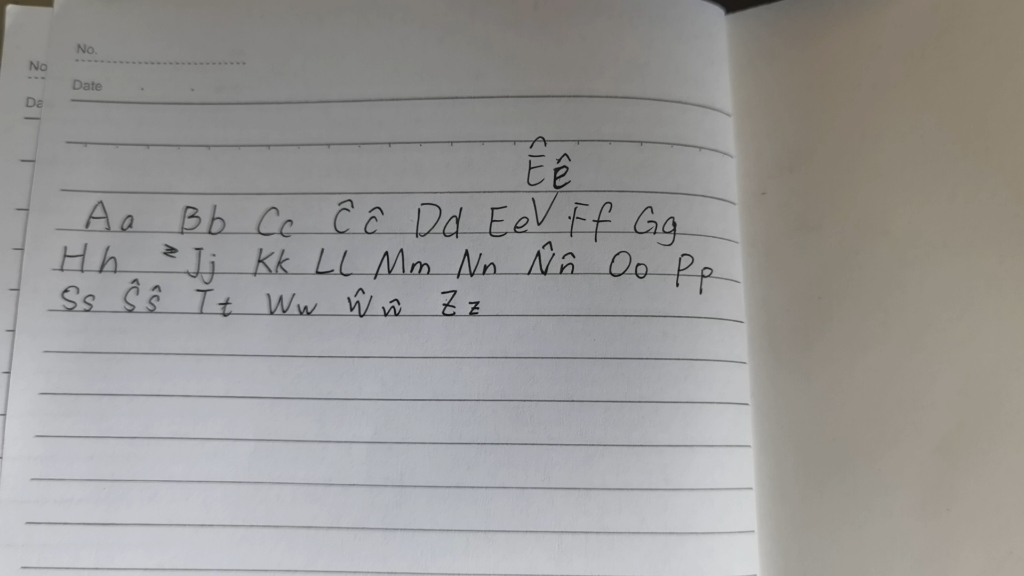 No.
No
Date
Da
Ê ê
Aa Bb Cc Ĉĉ Dd EeV Ff Gg
Hh Jj Kk Ll Mm Nn N̂n̂ Oo Pp
Ss Ŝŝ Tt Ww Ŵŵ Zz